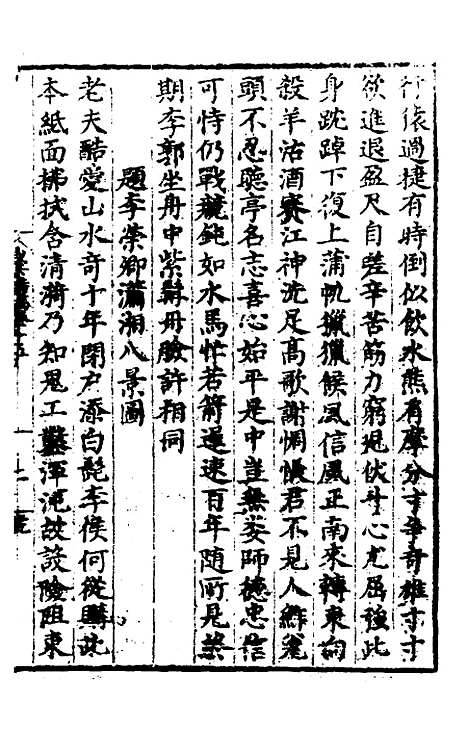 行猿過捷有時倒似飲水熊有摩分寸爭奇雄寸寸
欲進退盈尺自嗟辛苦筋力窮見伏斗心尤屈強此
身踸踔下復上蒲帆獵獵候風信風正南來轉東向
殺羊沽酒賽江神洗足高歌謝惆悵君不見人鮓瓮
頭不忍聽亭名志喜心始平是中豈無妾師德忠信
可恃仍戰兢鈍如水馬忤若箭遲速百年隨所見榮
期李郭坐舟中紫髯丹臉許相同
題李榮卿瀟湘八景圖
老夫酷愛山水奇十年閉戶添白髭李侯何從購此
本紙面拂拭含清漪乃知鬼工鑿渾沌故設險阻東